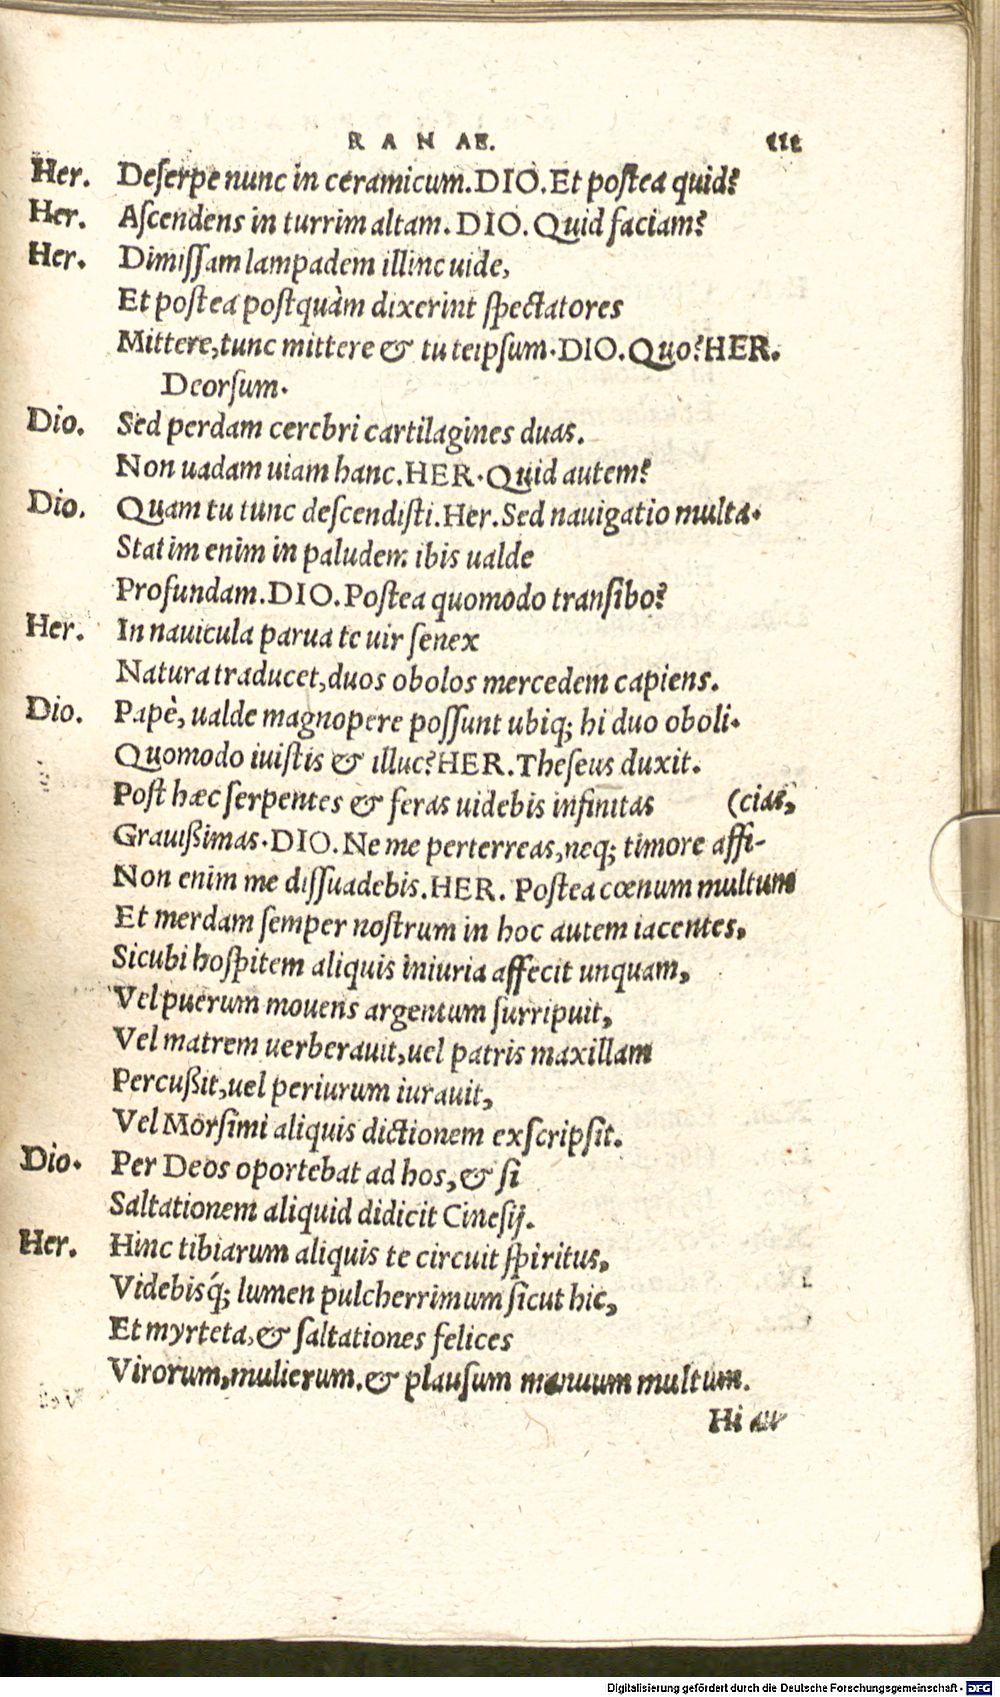 R A N AE. 111
Her. Deſerpe nunc in ceramicum. DIO. Et poſtea quid?
Her. Aſcendens in turrim altam. DIO. Quid faciam?
Her. Dimiſſam lampadem illinc uide,
Et poſtea poſtquàm dixerint ſpectatores
Mittere, tunc mittere & tu teipſum. DIO. Quo? HER.
Deorſum.
Dio. Sed perdam cerebri cartilagines duas.
Non uadam uiam hanc. HER. Quid autem?
Dio. Quam tu tunc deſcendiſti. Her. Sed nauigatio multa.
Statim enim in paludem ibis ualde
Profundam. DIO. Poſtea quomodo tranſibo?
Her. In nauicula parua te uir ſenex
Natura traducet, duos obolos mercedem capiens.
Dio. Papè, ualde magnopere poſſunt ubiq; hi duo oboli.
Quomodo iuiſtis & illuc? HER. Theſeus duxit.
Poſt hæc ſerpentes & feras uidebis infinitas (cias,
Grauiſſimas. DIO. Ne me perterreas, neq; timore affi-
Non enim me diſſuadebis. HER. Poſtea cœnum multum
Et merdam ſemper noſtrum in hoc autem iacentes,
Sicubi hoſpitem aliquis iniuria affecit unquam,
Vel puerum mouens argentum ſurripuit,
Vel matrem uerberauit, uel patris maxillam
Percußit, uel periurum iurauit,
Vel Morſimi aliquis dictionem exſcripſit.
Dio. Per Deos oportebat ad hos, & ſi
Saltationem aliquid didicit Cineſij.
Her. Hinc tibiarum aliquis te circuit ſpiritus,
Videbisq́; lumen pulcherrimum ſicut hic,
Et myrteta, & ſaltationes felices
Virorum, mulierum. & plauſum manuum multum.
Hi au
Digitalisierung gefördert durch die Deutsche Forschungsgemeinschaft - DFG